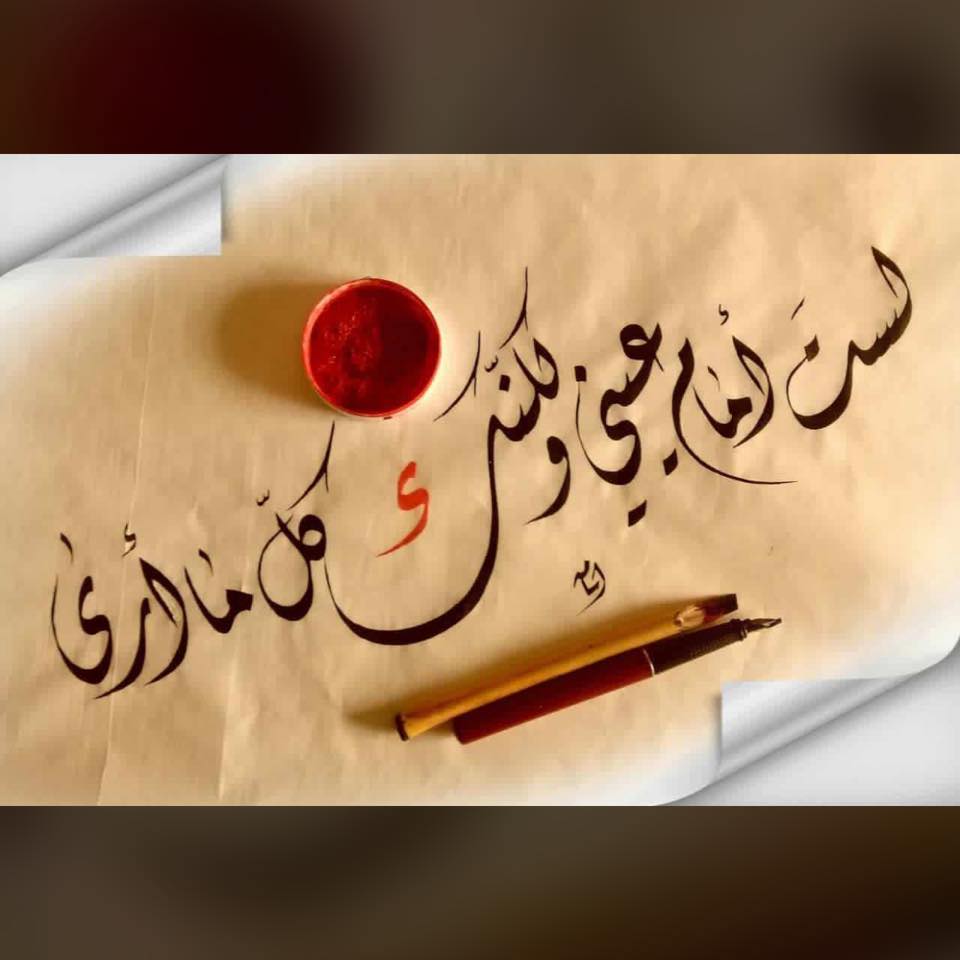 لستَ أمام عيني ولكنّك كلّ ما أرى